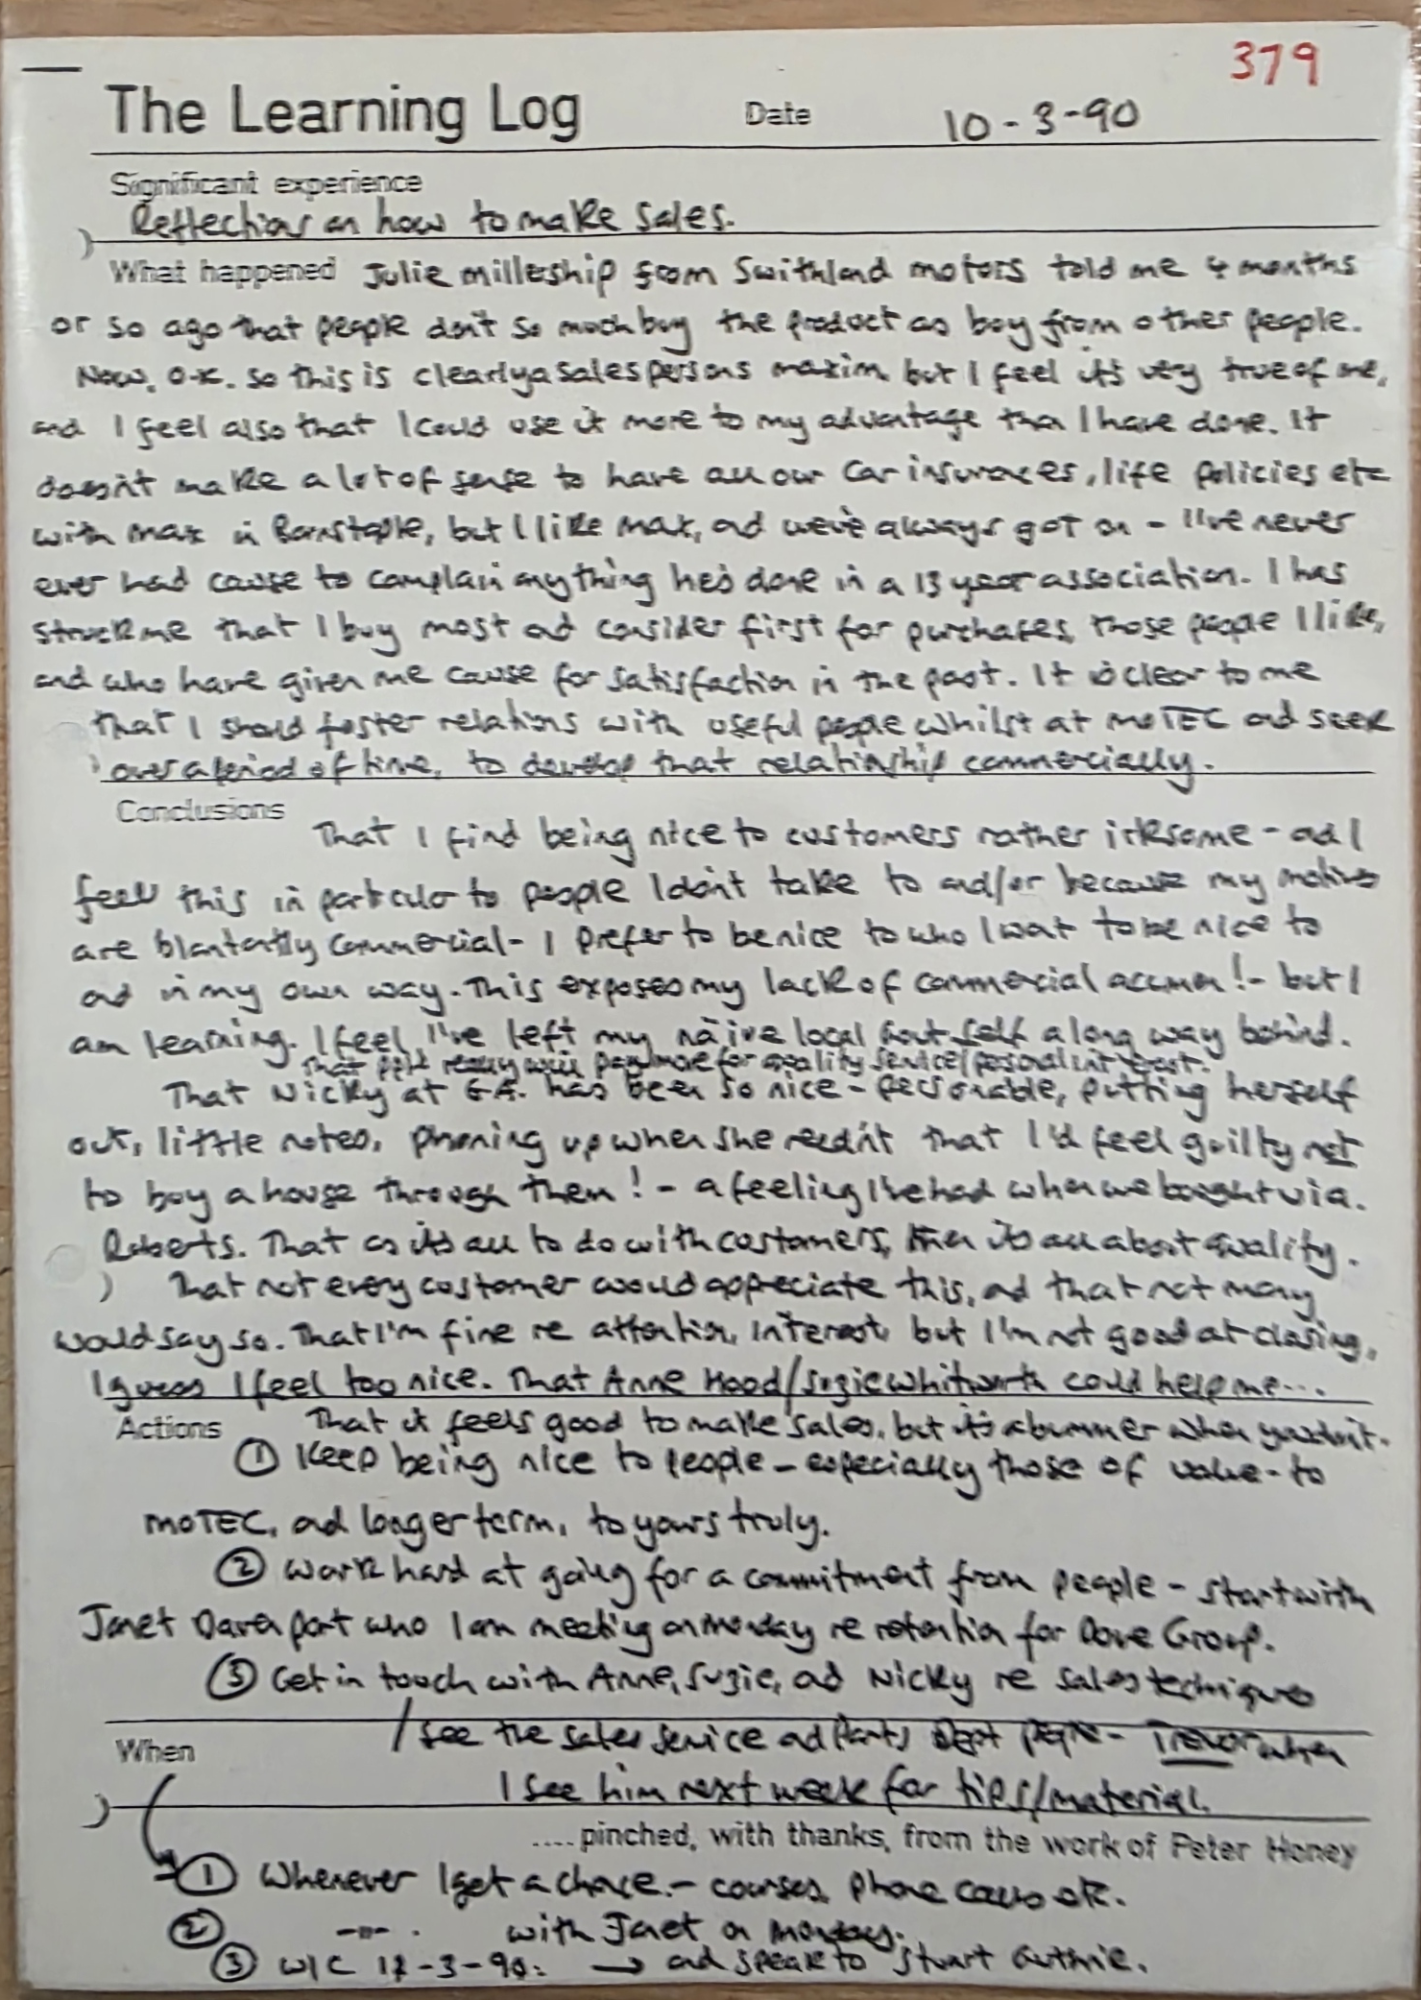 379
The Learning Log Date 10-3-90
Significant experience
Reflections on how to make sales.
What happened Julie Millership from Swithland motors told me 4 months
or so ago that people don't so much buy the product as buy from other people.
Now, O.K. so this is clearly a salespersons maxim but I feel it's very true of me,
and I feel also that I could use it more to my advantage than I have done. It
doesn't make a lot of sense to have all our car insurances, life policies etc
with Max in Barnstaple, but I like Max, and we've always got on - I've never
ever had cause to complain anything he's done in a 13 year association. I has
struck me that I buy most and consider first for purchases, those people I like,
and who have given me cause for satisfaction in the past. It is clear to me
that I should foster relations with useful people whilst at MOTEC and seek
over a period of time, to develop that relationship commercially.
Conclusions That I find being nice to customers rather irksome - and I
feel this in particular to people I don't take to and/or because my motives
are blantantly commercial - I prefer to be nice to who I want to be nice to
and in my own way. This exposes my lack of commercial acumen! - but I
am learning. I feel I've left my naive local Govt self a long way behind.
That ppl really will pay more for quality service/personal interest.
That Nicky at G.A. has been so nice - personable, putting herself
out, little notes, phoning up when she needn't that I'd feel guilty not
to buy a house through them! - a feeling I've had when we bought via.
Roberts. That as it's all to do with customers, then it's all about quality.
That not every customer would appreciate this, and that not many
would say so. That I'm fine re attention, interest, but I'm not good at closing,
I guess I feel too nice. That Anne Hood/Suzie Whitworth could help me...
Actions That it feels good to make sales, but it's a bummer when you don't.
① Keep being nice to people - especially those of value - to
MOTEC, and longer term, to yours truly.
② Work hard at going for a commitment from people - start with
Janet Davenport who I am meeting on Monday re retention for Dove Group.
③ Get in touch with Anne, Suzie, and Nicky re sales techniques
/ see the sales service and Parts Dept people - Trevor when
When I see him next week for tips/material.
.... pinched, with thanks, from the work of Peter Honey
① Whenever I get a chance. - courses, phone calls etc.
② -"- . with Janet on Monday.
③ W/C 12-3-90. → and speak to Stuart Guthrie.